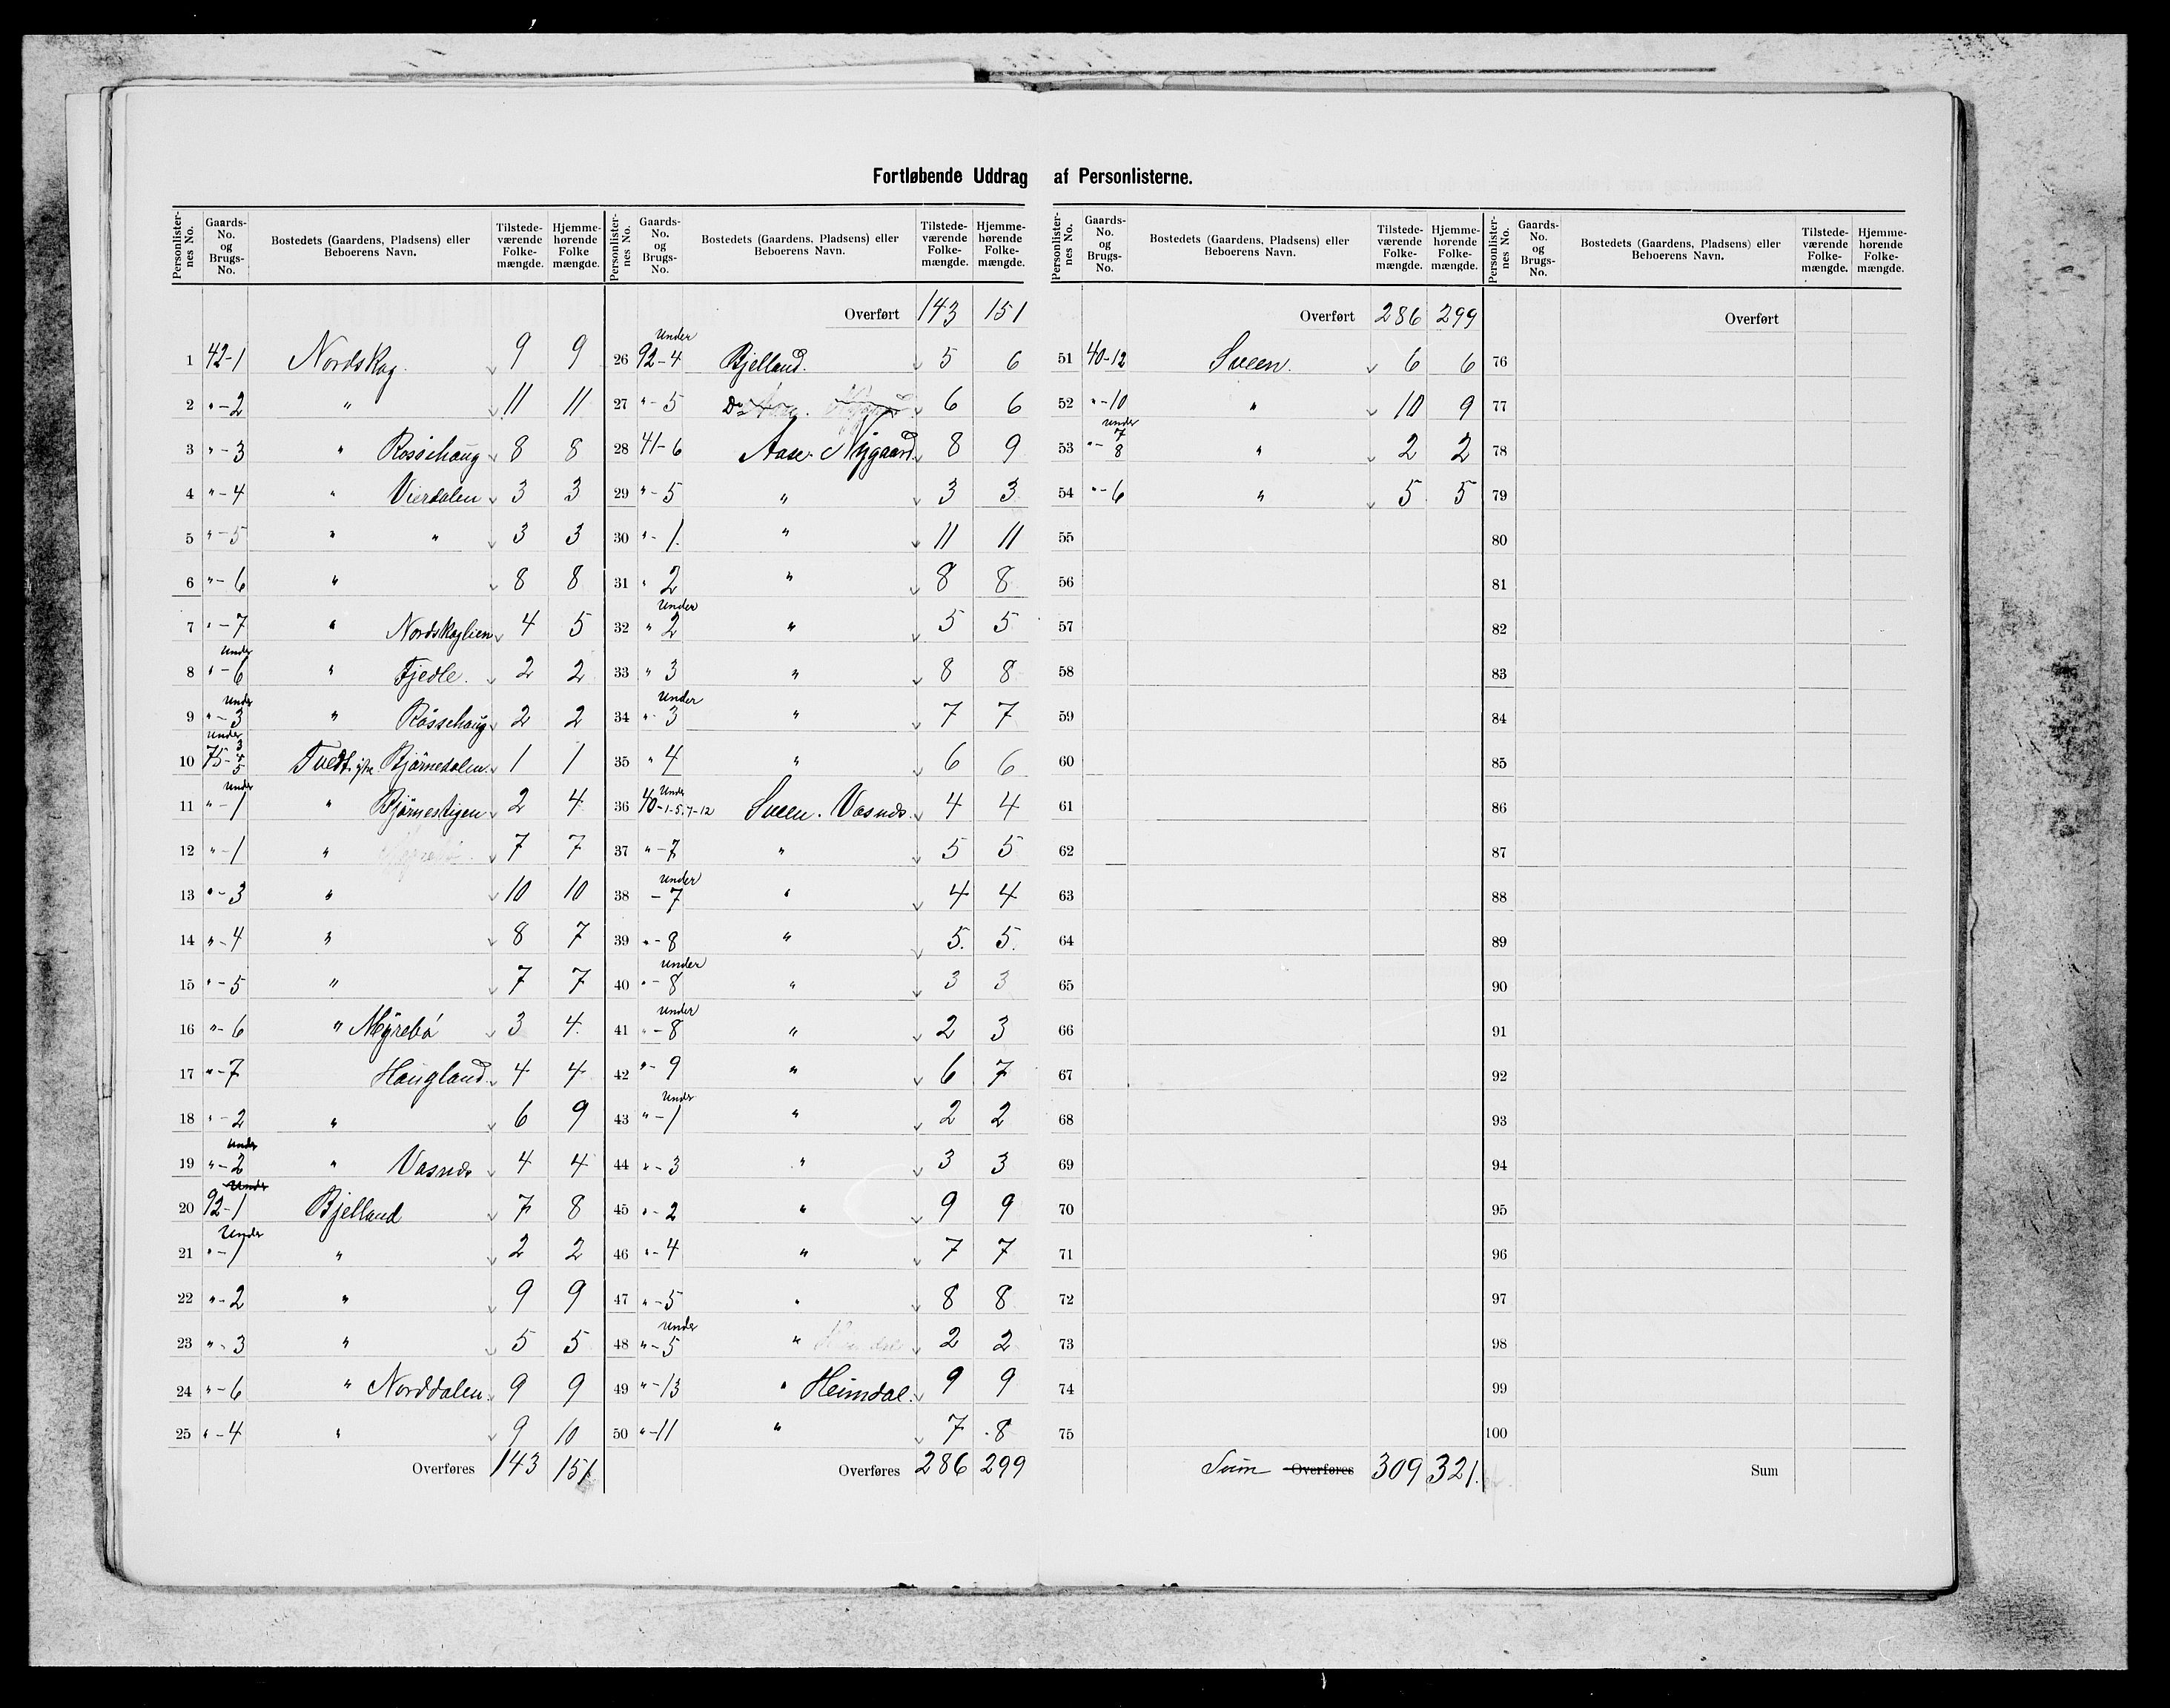 Fortløbende Uddrag af Personlisterne.
Personlister-nes No. | Gaards-No. og Brugs-No. | Bostedets (Gaardens, Pladsens) eller Beboerens Navn. | Tilstede-værende Folke-mængde. | Hjemme-hørende Folke mængde.
1 42-1 Nordskog. 9 9
2 "-2 " 11 11
3 "-3 " Rossehaug 8 8
4 "-4 " Vierdalen 3 3
5 "-5 " " 3 3
6 "-6 " 8 8
7 "-7 " Nordskoglien 4 5
8 Under "-6 " Fjedle. 2 2
9 Under "-3 " Rossehaug 2 2
10 Under 75-3 4 5 Tvedt ytre Bjørnedalen 1 1
11 Under "-1 " Bjørnestigen 2 4
12 "-1 " 7 7
13 "-3 " 10 10
14 "-4 " 8 7
15 "-5 " 7 7
16 "-6 " Myrebø 3 4
17 "-7 Haugland 4 4
18 "-2 " 6 9
19 Under "-2 " Vasnds 4 4
20 Under 92-1 Bjelland 7 8
21 Under "-1 " 2 2
22 "-2 " 9 9
23 "-3 " 5 5
24 "-6 " Norddalen 9 9
25 "-4 " 9 10
Overføres 143 151
Personlister-nes No. | Gaards-No. og Brugs-No. | Bostedets (Gaardens, Pladsens) eller Beboerens Navn. | Tilstede-værende Folke-mængde. | Hjemme-hørende Folke-mængde.
Overført 143 151
26 Under 92-4 Bjelland. 5 6
27 "-5 Do 6 6
28 41-6 Aase. Nygaard 8 9
29 "-5 " 3 3
30 "-1 " 11 11
31 " 2 " 8 8
32 Under " 2 " 5 5
33 " 3 " 8 8
34 Under " 3 " 7 7
35 " 4 " 6 6
36 Under 40-1-5.7-12 Sveen. Vasnds 4 4
37 "-7 " 5 5
38 Under -7 " 4 4
39 "-8 " 5. 5.
40 Under "-8 " 3 3
41 Under "-8 " 2 3
42 "-9 " 6 7
43 Under "-1 " 2 2
44 "-3 " 3 3
45 "-2 " 9 9
46 "-4 " 7 7
47 "-5 " 8 8
48 Under "-5 " 2 2
49 "-13 " Heimdal 9 9
50 "-11 " 7 8
Overføres 286 299
Personlister-nes No. | Gaards-No. og Brugs-No. | Bostedets (Gaardens, Pladsens) eller Beboerens Navn. | Tilstede-værende Folke-mængde. | Hjemme-hørende Folke-mængde.
Overført 286 299
51 40-12 Sveen. 6 6
52 "-10 " 10 9
53 under "-7 8 " 2 2
54 "-6 " 5 5
55
56
57
58
59
60
61
62
63
64
65
66
67
68
69
70
71
72
73
74
75
Sum Overføres 309 321.
Personlister-nes No. | Gaards-No. og Brugs-No. | Bostedets (Gaardens, Pladsens) eller Beboerens Navn. | Tilstede-værende Folke-mængde. | Hjemme-hørende Folke-mængde.
Overført
76
77
78
79
80
81
82
83
84
85
86
87
88
89
90
91
92
93
94
95
96
97
98
99
100
Sum